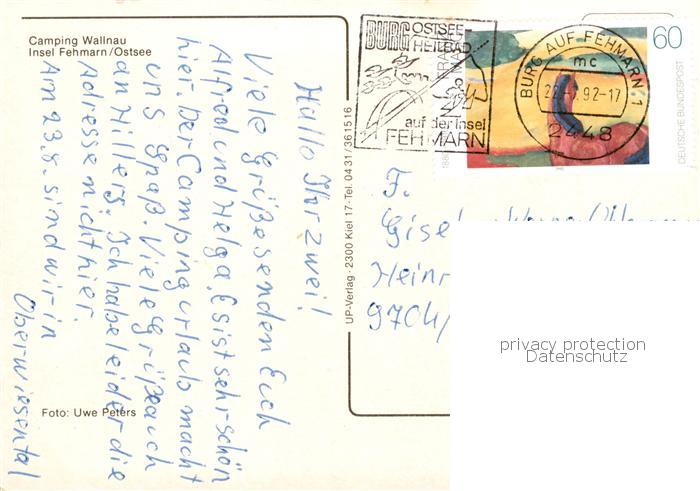 Camping Wallnau
Insel Fehmarn/Ostsee
Hallo Ihr zwei!
Viele Grüße senden Euch
Alfred und Helga. Es ist sehr schön
hier. Der Campingurlaub macht
uns Spaß. Viele Grüße auch
an Hillers. Ich habe leider die
Adresse nicht hier.
Am 23.8. sind wir in
Oberwiesental
Foto: Uwe Peters
UP-Verlag · 2300 Kiel 17 · Tel. 0431/361516
BURG OSTSEE
HEILBAD
auf der Insel
FEHMARN
BURG AUF FEHMARN 1
mc
92-17
2448
60
DEUTSCHE BUNDESPOST
F.
Heinr
9704/
privacy protection
Datenschutz